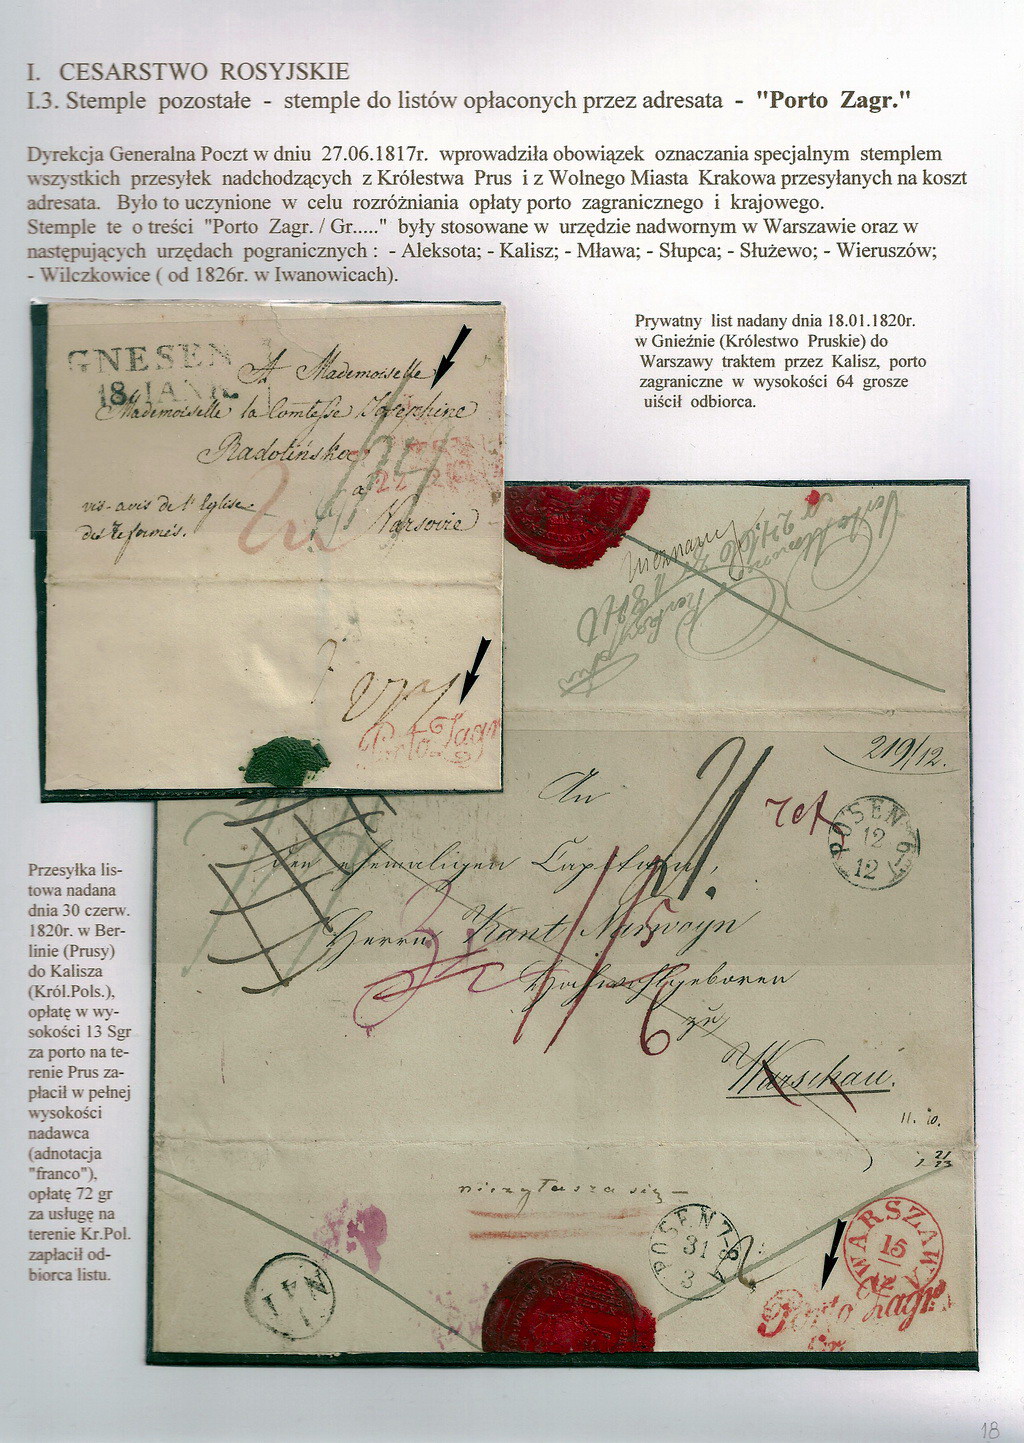 I. CESARSTWO ROSYJSKIE
I.3. Stemple pozostałe - stemple do listów opłaconych przez adresata - "Porto Zagr."
Dyrekcja Generalna Poczt w dniu 27.06.1817r. wprowadziła obowiązek oznaczania specjalnym stemplem
wszystkich przesyłek nadchodzących z Królestwa Prus i z Wolnego Miasta Krakowa przesyłanych na koszt
adresata. Było to uczynione w celu rozróżniania opłaty porto zagranicznego i krajowego.
Stemple te o treści "Porto Zagr. / Gr....." były stosowane w urzędzie nadwornym w Warszawie oraz w
następujących urzędach pogranicznych : - Aleksota; - Kalisz; - Mława; - Słupca; - Służewo; - Wieruszów;
- Wilczkowice ( od 1826r. w Iwanowicach).
Prywatny list nadany dnia 18.01.1820r.
w Gnieźnie (Królestwo Pruskie) do
Warszawy traktem przez Kalisz, porto
zagraniczne w wysokości 64 grosze
uiścił odbiorca.
GNESEN
18 IANR.
A Mademoiselle
Mademoiselle la Comtesse Josephine
Radolińska
a
Varsovie
vis-avis de l'Eglise
des Reformés.
Porto Zagr
219/12.
An
den ehemaligen Capitain,
Herrn Kant Narwoyn
Hochwohlgeboren
zu
Warschau.
ret
POSEN
12
12
11. 10.
21
23
niezgłasza się
POSEN
31
3
WARSZAWA
15
12
Porto Zagr.
NAI
Przesyłka lis-
towa nadana
dnia 30 czerw.
1820r. w Ber-
linie (Prusy)
do Kalisza
(Król.Pols.),
opłatę w wy-
sokości 13 Sgr
za porto na te-
renie Prus za-
płacił w pełnej
wysokości
nadawca
(adnotacja
"franco"),
opłatę 72 gr
za usługę na
terenie Kr.Pol.
zapłacił od-
biorca listu.
18